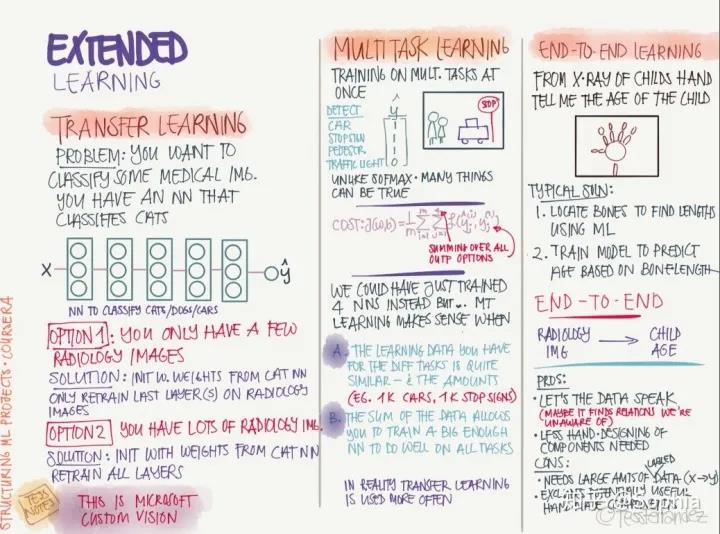 EXTENDED
LEARNING
TRANSFER LEARNING
PROBLEM: YOU WANT TO
CLASSIFY SOME MEDICAL IMG.
YOU HAVE AN NN THAT
CLASSIFIES CATS
X
ŷ
NN TO CLASSIFY CATS/DOGS/CARS
OPTION 1: YOU ONLY HAVE A FEW
RADIOLOGY IMAGES
SOLUTION: INIT W. WEIGHTS FROM CAT NN
ONLY RETRAIN LAST LAYER(S) ON RADIOLOGY
IMAGES
OPTION 2 YOU HAVE LOTS OF RADIOLOGY IMG.
SOLUTION: INIT WITH WEIGHTS FROM CAT NN
RETRAIN ALL LAYERS
THIS IS MICROSOFT
CUSTOM VISION
TESS
NOTES
STRUCTURING ML PROJECTS · COURSERA
MULTI TASK LEARNING
TRAINING ON MULT. TASKS AT
ONCE
DETECT ŷ
CAR 1
STOPSIGN 1
PEDESTR. 1
TRAFFIC LIGHT 0
STOP
UNLIKE SOFMAX · MANY THINGS
CAN BE TRUE
COST: J(w,b) =
SUMMING OVER ALL
OUTP OPTIONS
WE COULD HAVE JUST TRAINED
4 NNS INSTEAD BUT... MT
LEARNING MAKES SENSE WHEN
A. THE LEARNING DATA YOU HAVE
FOR THE DIFF TASKS IS QUITE
SIMILAR - & THE AMOUNTS
(EG. 1K CARS, 1K STOP SIGNS)
B. THE SUM OF THE DATA ALLOWS
YOU TO TRAIN A BIG ENOUGH
NN TO DO WELL ON ALL TASKS
IN REALITY TRANSFER LEARNING
IS USED MORE OFTEN
END-TO-END LEARNING
FROM X-RAY OF CHILDS HAND
TELL ME THE AGE OF THE CHILD
TYPICAL SOLN:
1. LOCATE BONES TO FIND LENGTHS
USING ML
2. TRAIN MODEL TO PREDICT
AGE BASED ON BONELENGTH
END-TO-END
RADIOLOGY → CHILD
IMG AGE
PROS:
· LET'S THE DATA SPEAK
(MAYBE IT FINDS RELATIONS WE'RE
UNAWARE OF)
· LESS HAND-DESIGNING OF
COMPONENTS NEEDED
CONS:
· NEEDS LARGE AMTS OF LABLED DATA (X→Y)
· EXCLUDES POTENTIALLY USEFUL
@TessFerrandez